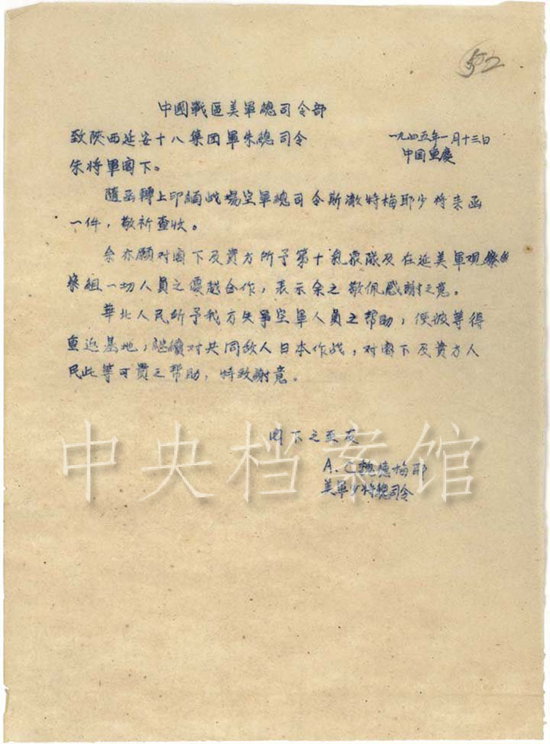 52
中國戰區美軍總司令部
致陝西延安十八集团軍朱總司令
一九四五年一月十三日
中国重慶
朱将軍閣下。
隨函轉上印緬战場空軍總司令斯澈特梅耶少将来函
一件，敬祈查收。
余亦願对閣下及貴方所予第十氣象隊及在延美軍观察
组一切人员之優越合作，表示余之敬佩感謝之意。
華北人民所予我方失事空軍人員之帮助，使彼等得
重返基地，繼續对共同敌人日本作战，对閣下及貴方人
民此等可貴之帮助，特致謝意。
閣下之至友
A.C.魏德梅耶
美軍少将總司令
中央档案馆